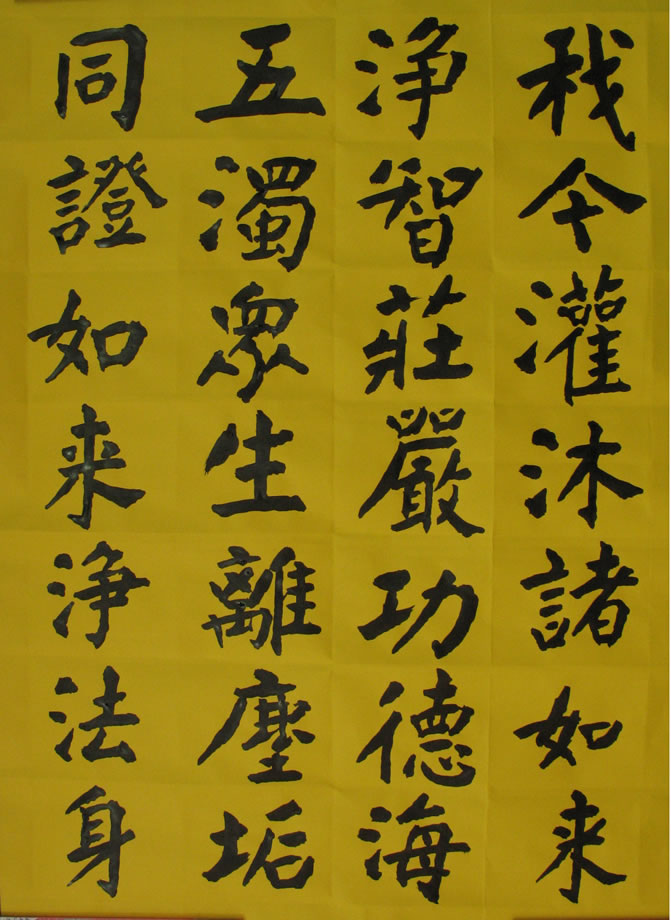 我今灌沐諸如来
淨智莊嚴功德海
五濁眾生離塵垢
同證如来淨法身